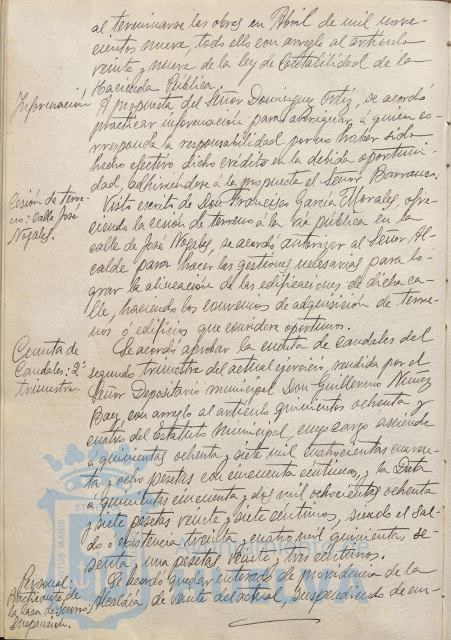 al terminarse las obras en Abril de mil nove-
cientos nueve, todo ello con arreglo al artículo
veinte y nueve de la ley de Contabilidad de la
Hacienda Pública
Información
A propuesta del Señor Dominguez Ortiz, se acordó
practicar información para averiguar á quien co-
rresponde la responsabilidad por no haber sido
hecho efectivo dicho crédito en la debida oportuni-
dad, adhiriendose á la propuesta el Señor Barranco.
Cesión de terre-
no: calle José
Nogales.
Visto escrito de Don Francisco García Morales, ofre-
ciendo la cesión de terreno á la vía pública en la
calle de José Nogales, se acordó autorizar al Señor Al-
calde para hacer las gestiones necesarias para lo-
grar la alineación de las edificaciones de dicha ca-
lle, haciendo los convenios de adquisición de terre-
nos ó edificios que considere oportunos.
Cuenta de
Caudales: 2º
trimestre.
Se acordó aprobar la cuenta de caudales del
segundo trimestre del actual ejercicio, rendida por el
Señor Depositario municipal Don Guillermo Núñez
Bay, con arreglo al artículo quinientos ochenta y
cuatro del Estatuto Municipal, cuyo cargo asciende
á quinientas ochenta y siete mil cuatrocientas cuaren-
ta y ocho pesetas con cincuenta centimos, y la Data
á quinientas cincuenta y dos mil ochocientas ochenta
y siete pesetas veinte y siete centimos, siendo el Sal-
do ó existencia treinta y cuatro mil quinientas se-
senta y una pesetas veinte y tres centimos.
Personal:
Practicante de
la Casa de Socorro;
suspensión.
Se acordó quedar enterado de providencia de la
Alcaldía, de veinte del actual, suspendiendo de em-